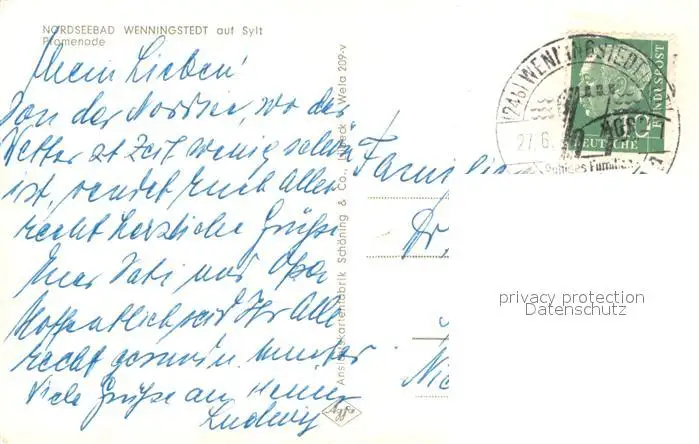 NORDSEEBAD WENNINGSTEDT auf Sylt
Promenade
Mein Lieben!
Von der Nordsee, wo das
Wetter zt Zeit wenig schön
ist, sendet Euch allen
recht herzliche Grüße
Euer Vati und Opa
Hoffentlich seid Ihr Alle
recht gesund munter
Viele Grüße an
Ludwig
Ansichtskartenfabrik Schöning & Co., Lübeck Wela 209-v
Agfa
Familie
Dr.
(24b) WENNINGSTEDT
27.6.
DEUTSCHE
BUNDESPOST
privacy protection
Datenschutz